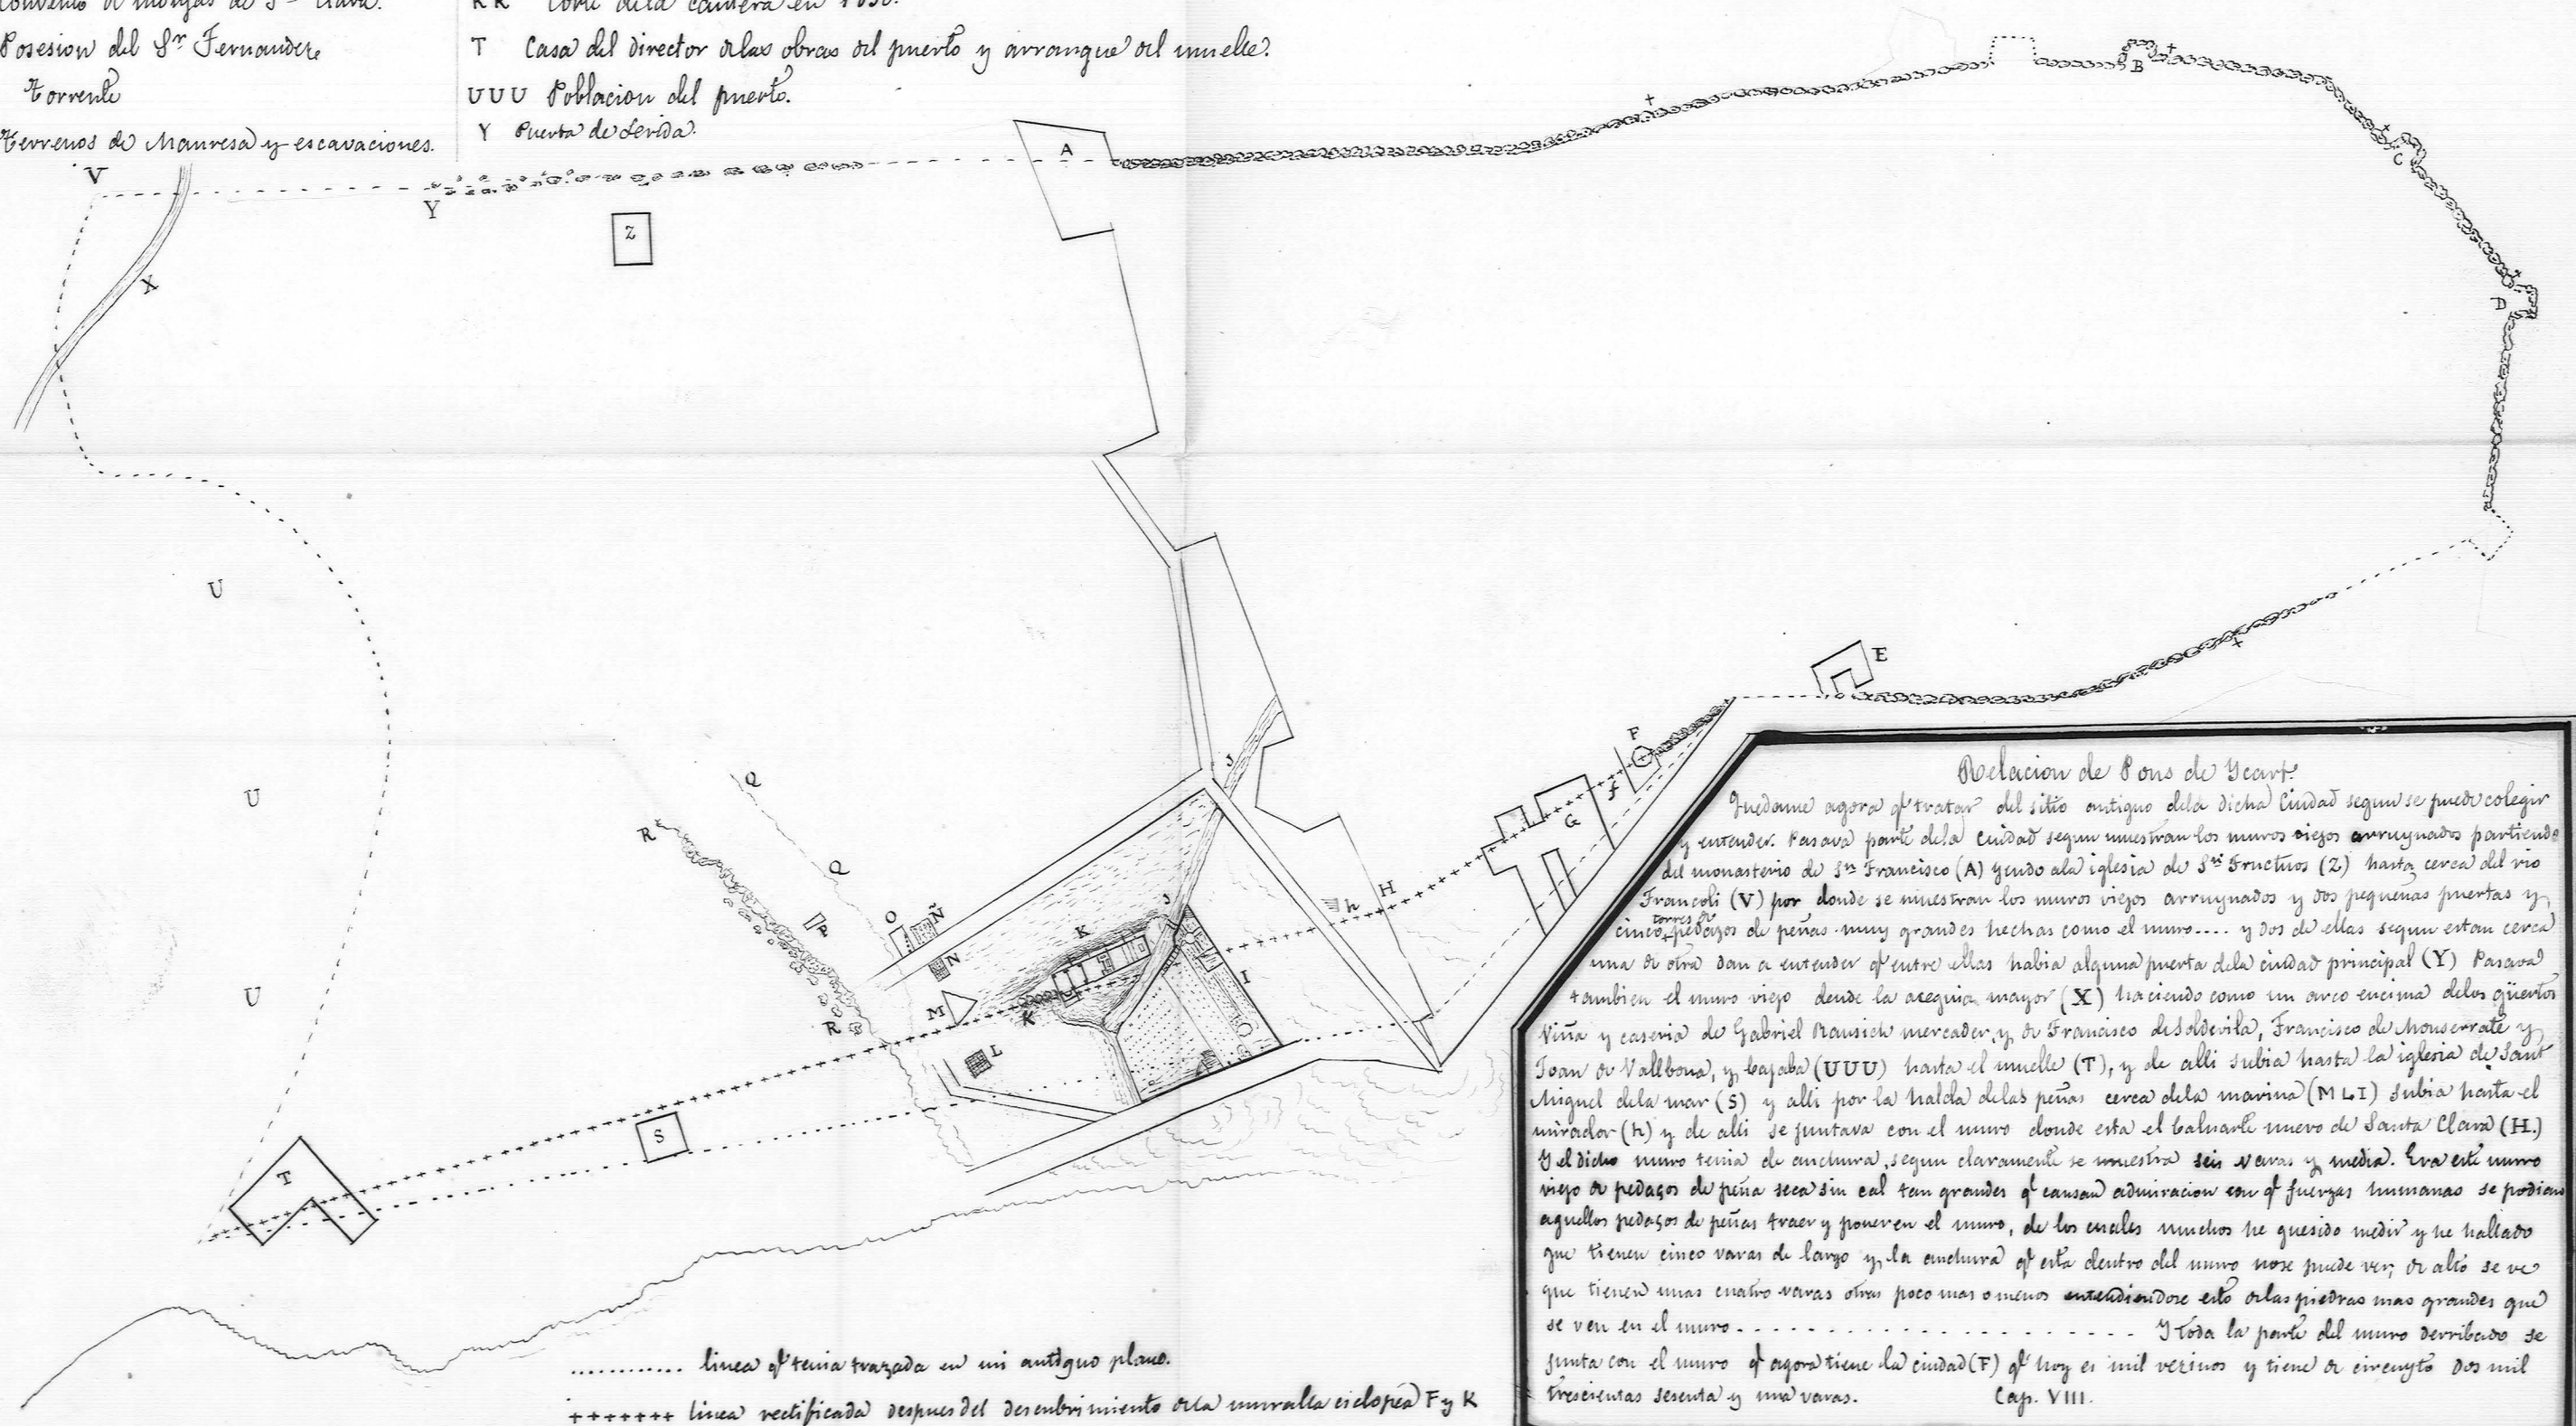 Convento de monjas de Sta Clara.
Posesion del Sr Fernandez
Torrente
Terrenos de Manresa y escavaciones.
RR Corte de la cantera en 1850.
T Casa del director de las obras del puerto y arranque del muelle.
UUU Poblacion del puerto.
Y Puerta de Lerida.
V
Y
X
Z
A
B
C
D
E
F
f
G
H
h
I
J
J
K
K
L
M
N
Ñ
O
P
Q
Q
R
R
S
T
U
U
U
............ linea qe tenia trazada en mi antiguo plano.
+++++++ linea rectificada despues del descubrimiento de la muralla ciclopea F y K
Relacion de Pons de Ycart.
Quedame agora qe tratar del sitio antiguo de la dicha Ciudad segun se puede colegir
y entender. Pasava parte de la Ciudad segun muestran los muros viejos arruynados partiendo
del monasterio de Sn Francisco (A) yendo a la iglesia de Sn Fructuos (Z) hasta cerca del rio
Francoli (V) por donde se muestran los muros viejos arruynados y dos pequeñas puertas y
cinco torres de pedazos de peñas muy grandes hechas como el muro.... y dos de ellas segun estan cerca
una de otra dan a entender qe entre ellas habia alguna puerta de la ciudad principal (Y) Pasava
tambien el muro viejo desde la acequia mayor (X) haciendo como un arco encima de los güertos
viña y caseria de Gabriel mercader, y de Francisco de Soldevila, Francisco de Monserrate y
Joan de Vallbona, y bajaba (UUU) hasta el muelle (T), y de alli subia hasta la iglesia de Sant
Miguel de la mar (S) y alli por la halda de las peñas cerca de la marina (MLI) subia hasta el
mirador (h) y de alli se juntava con el muro donde esta el baluarte nuevo de Santa Clara (H.)
Y el dicho muro tenia de anchura, segun claramente se muestra seis varas y media. Era este muro
viejo de pedaços de peña seca sin cal tan grandes qe causan admiracion con qe fuerzas humanas se podian
aquellos pedaços de peñas traer y poner en el muro, de los cuales muchos he quesido medir y he hallado
que tienen cinco varas de largo y la anchura qe esta dentro del muro no se puede ver, de alto se ve
que tienen unas cuatro varas otras poco mas o menos entendiendose esto de las piedras mas grandes que
se ven en el muro. - - - - - - - - - - - - - - - - - - - Y toda la parte del muro derribado se
junta con el muro qe agora tiene la ciudad (F) qe hoy es mil vezinos y tiene de circuyto dos mil
trescientas sesenta y una varas. Cap. VIII.